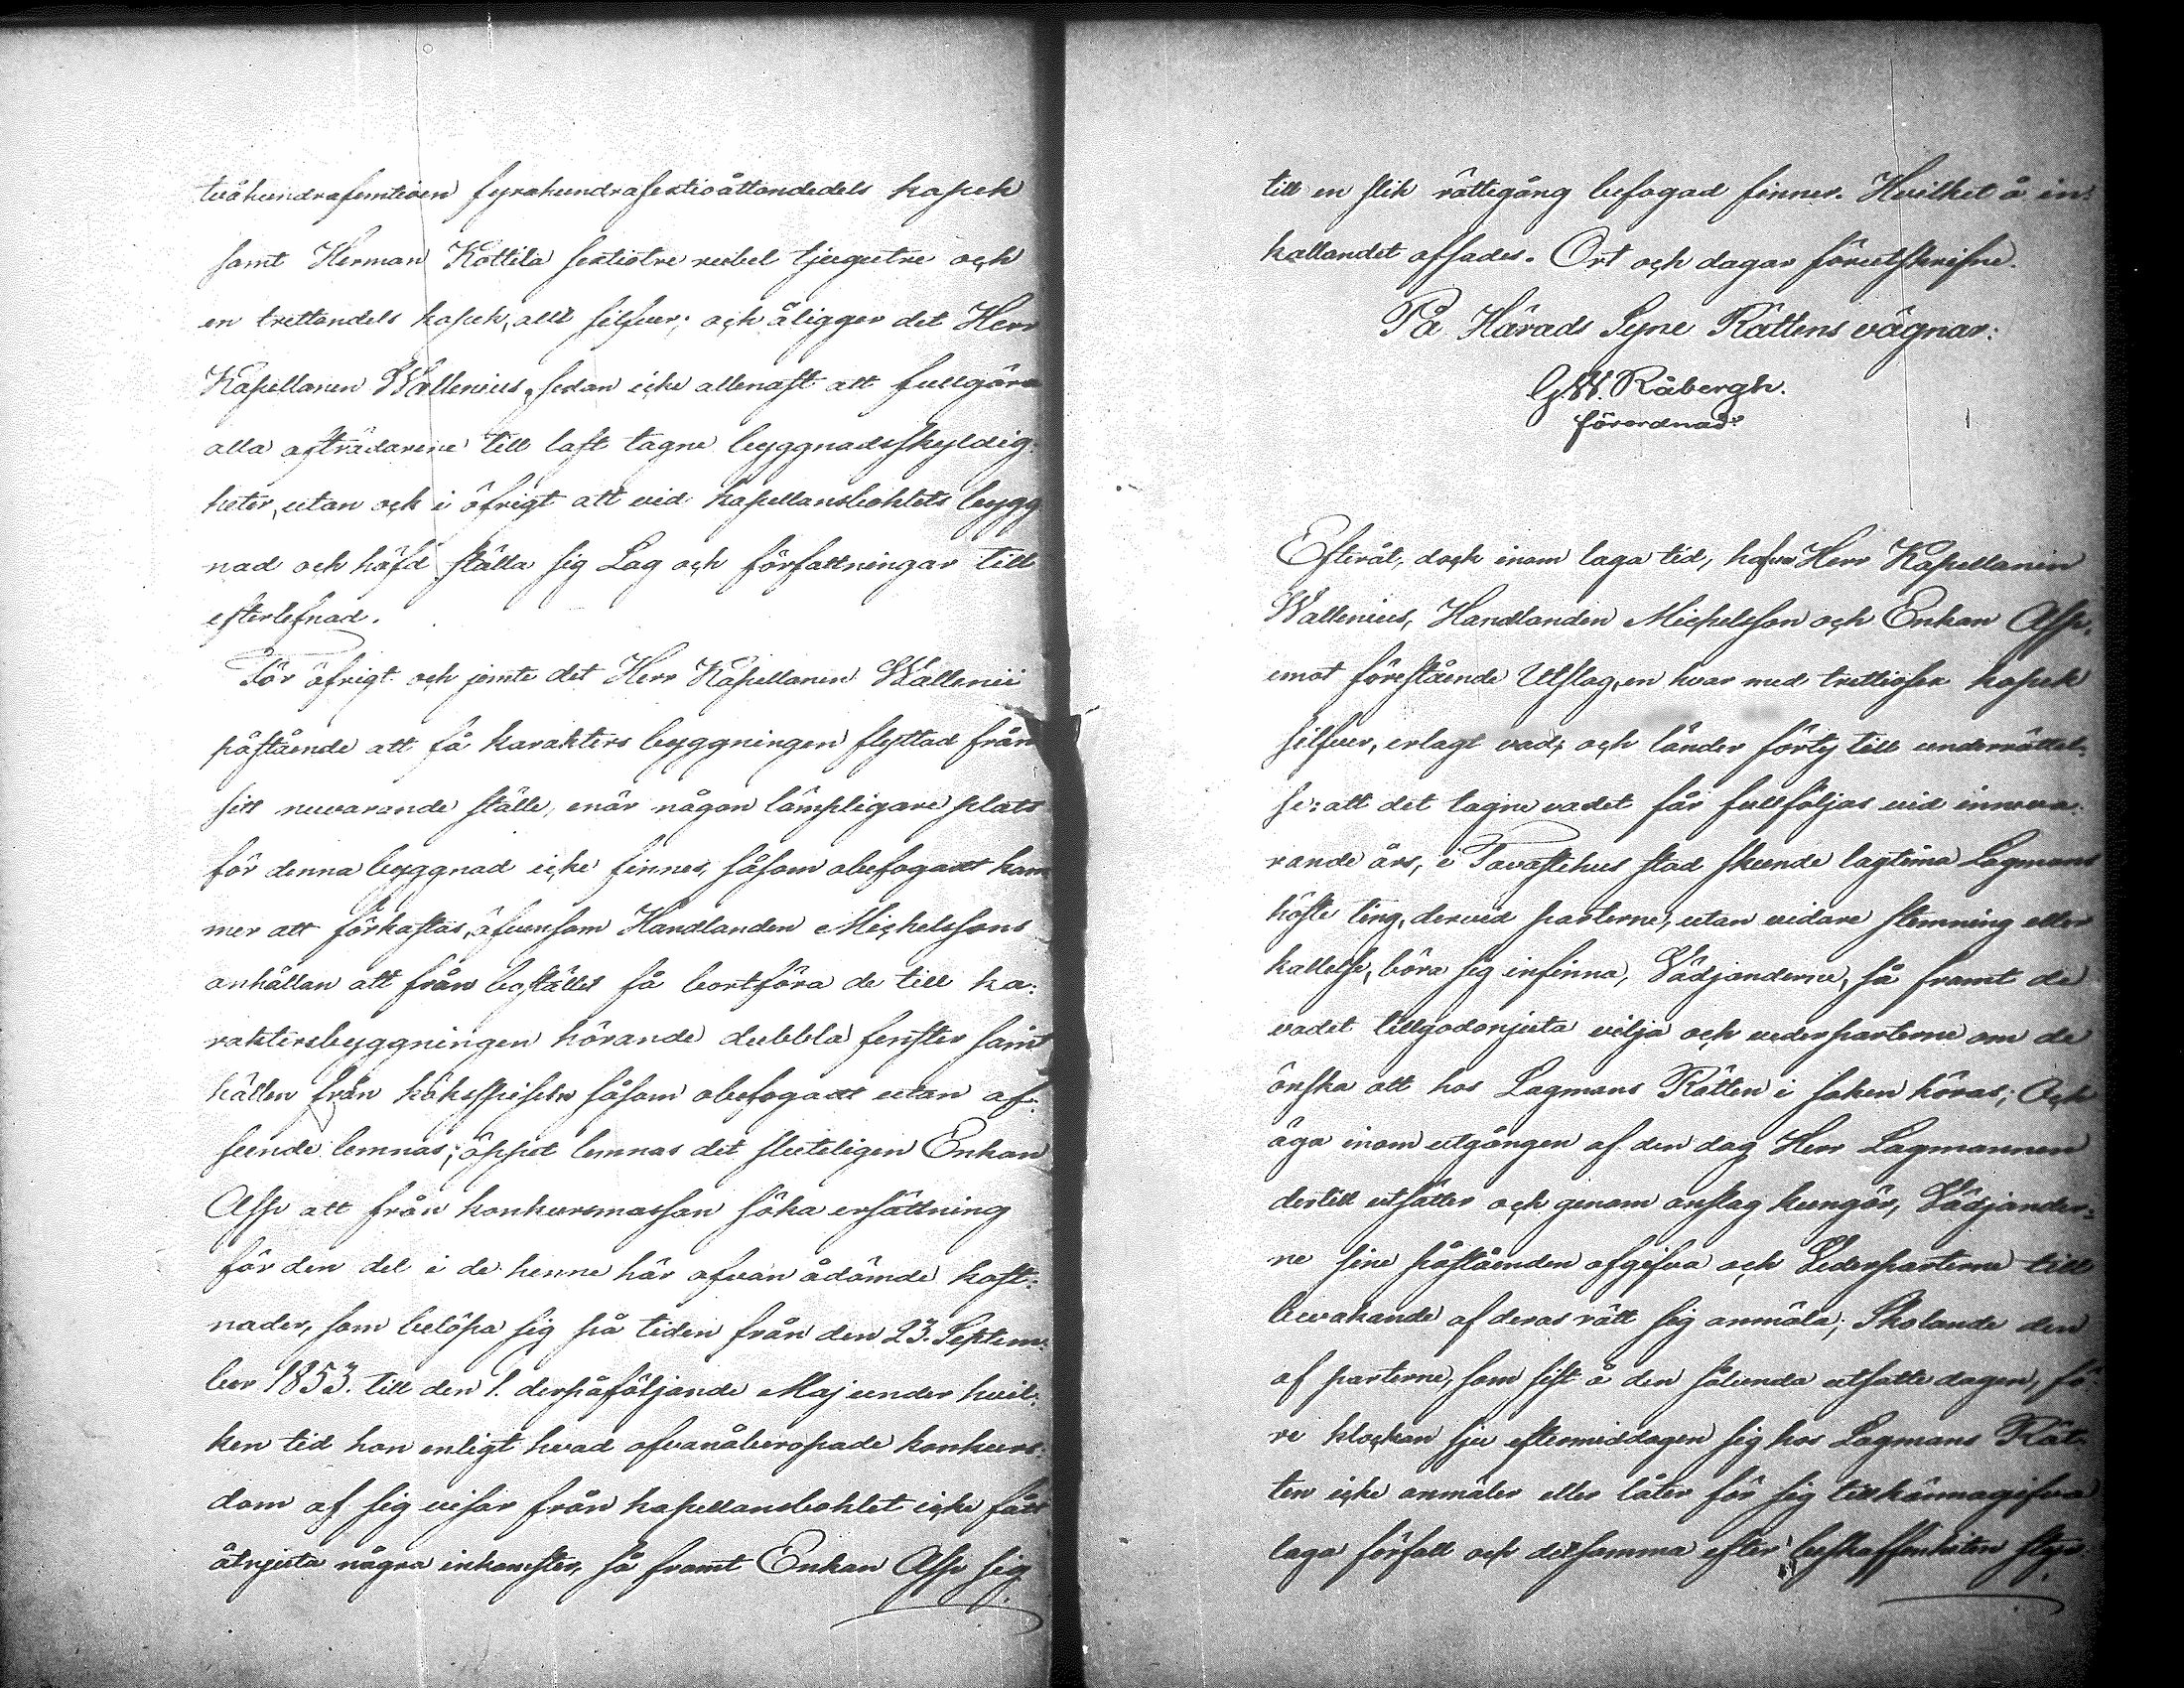 tvåhundrafemtioen fyrahundrasextioåttondedels kopek
samt Herman Kottila sextiotre rubel tjugutre och
en trettondels kopek, allt silfver; och åligger det Herr
Kapellanen Wallenius, sedan icke allenast att fullgöra
alla afträdarene till last tagne byggnadsskyldig-
heter, utan och i öfrigt att vid kapellansbohlets bygg
nad och häfd ställa sig Lag och författningar till
efterlefnad.
För öfrigt och jemte det Herr Kapellanen Wallenii
påstående att få karakters byggningen flyttad från
sitt nuvarande ställe, enär någon lämpligare plats
för denna byggnad icke finnes, såsom obefogadt kom
mer att förkastas, äfvensom Handlanden Michelssons
anhållan att från bostället få bortföra de till ka:
raktersbyggningen hörande dubbla fenster samt
hällen från köksspiseln såsom obefogadt utan af-
seende lemnas; öppet lemnas det sluteligen Enkan
Asp att från konkursmassan söka ersättning
för den del i de henne här ofvan ådömde kost:
nader, som belöpa sig på tiden från den 23. Septem:
ber 1853. till den 1. derpåföljande Maj under hvil:
ken tid hon enligt hvad ofvanåberopade konkurs:
dom af sig visar från kapellansbohlet icke fått
åtnjuta några inkomster, så framt Enkan Asp sig
till en slik rättegång befogad finner. Hvilket å in:
kallandet afsades. Ort och dagar förutskrifne.
På Härads Syne Rättens vägnar:
G. W. Råbergh.
förordnad
Efteråt, dock inom laga tid, hafva Herr Kapellanen
Wallenius, Handlanden Michelsson och Enkan Asp,
emot förestående Utslag, en hvar med trettiosex kopek
silfver, erlagt vad; och länder förty till underrättel-
se: att det tagne vadet får fullföljas vid innova-
rande års, i Tavastehus stad skeende lagtima Lagmans
höste ting, dervid parterne, utan vidare stemning eller
kallelse, böra sig infinna, Vädjanderne, så framt de
vadet tillgodonjuta vilja och vederparterne om de
önska att hos Lagmans Rätten i saken höras; Och
äga inom utgången af den dag Herr Lagmannen
dertill utsätter och genom anslag kungör, Vädjander:
ne sine påståenden afgifva och Vederparterne till
bevakande af deras rätt sig anmäla; Skolande den
af parterne, som sist å den sålunda utsatte dagen, fö
re klockan sju eftermiddagen sig hos Lagmans Rät-
ten icke anmäler eller låter för sig tillkännagifva
laga förfall och detsamma efter beskaffenheten styr